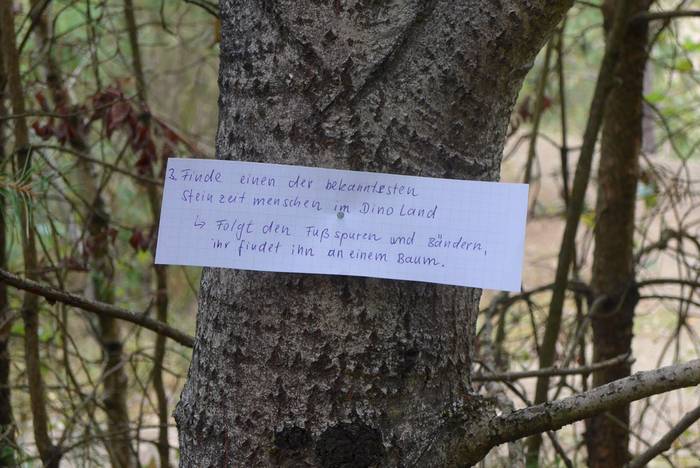 3. Finde einen der bekanntesten
Steinzeitmenschen im Dino Land
↳ Folgt den Fußspuren und Bändern,
ihr findet ihn an einem Baum.